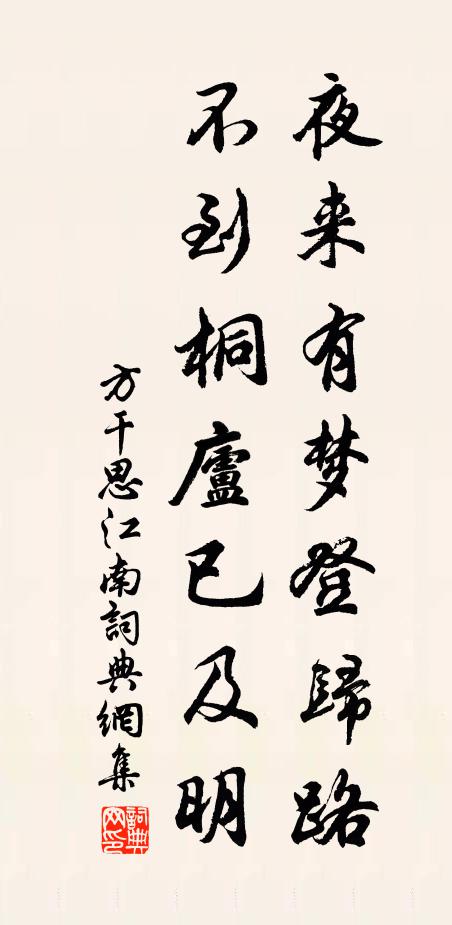 夜来有梦登歸路
不到桐廬已及明
方干思江南詞典網集
詞典網印